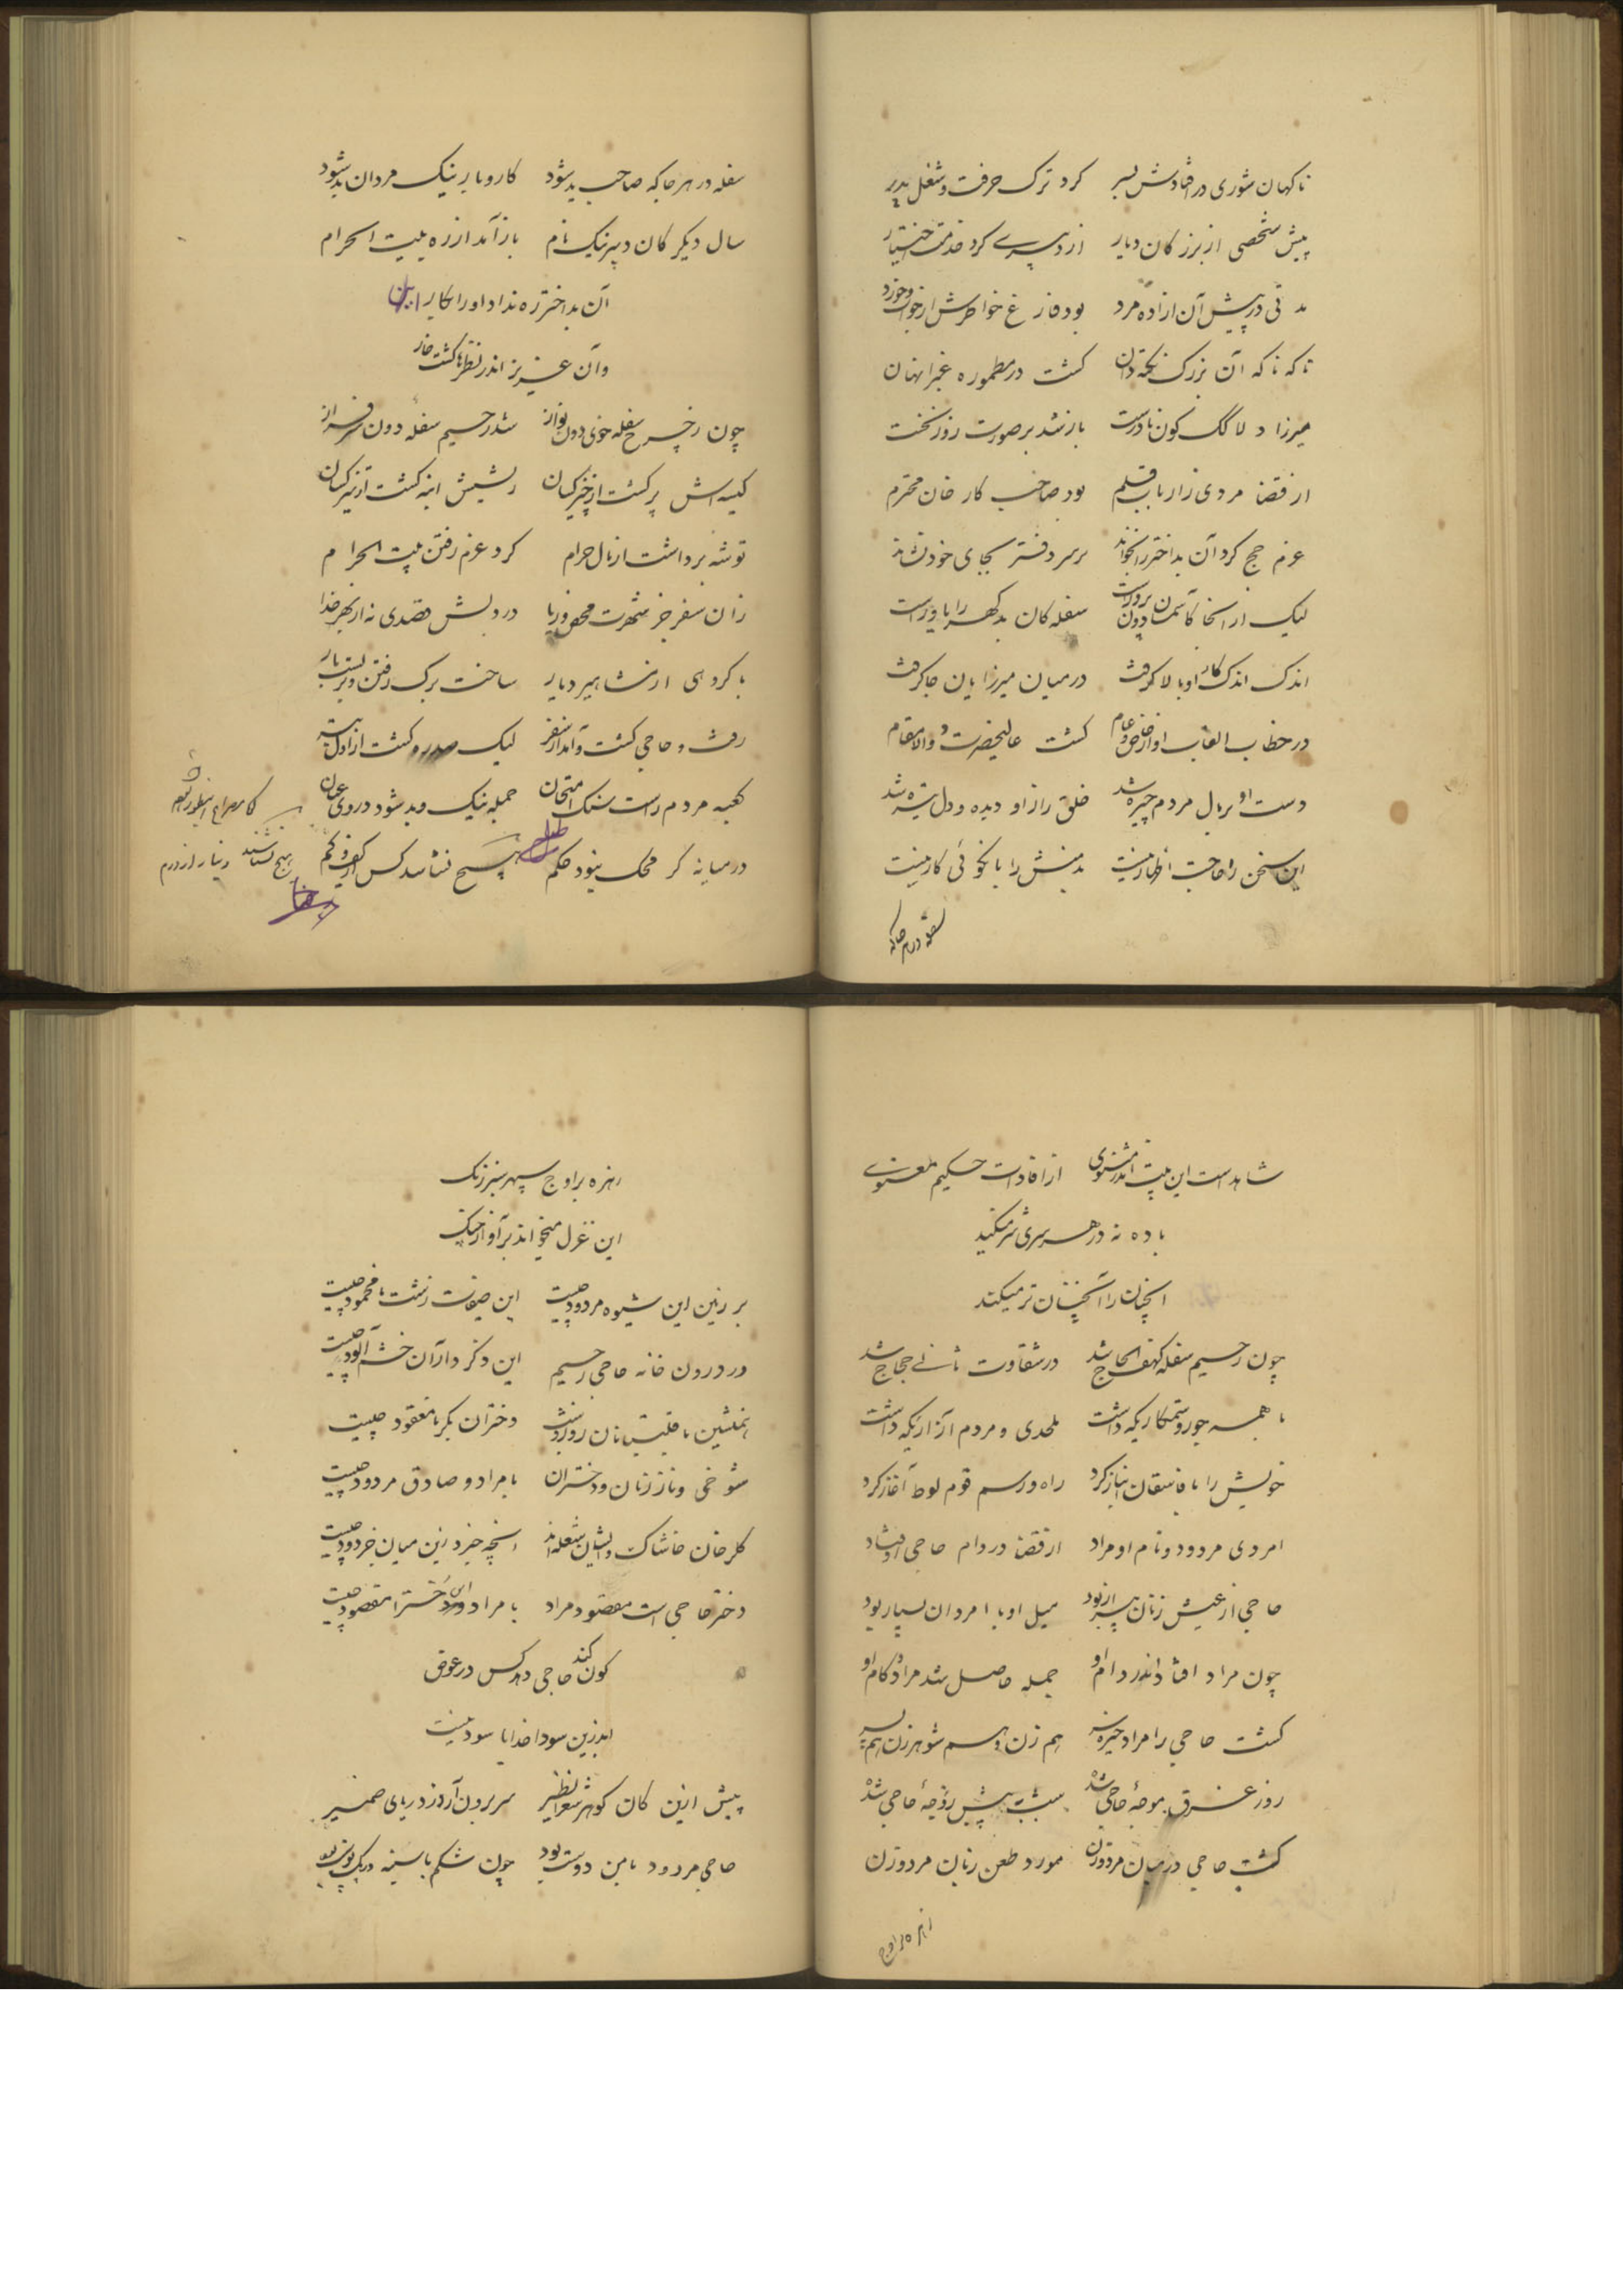 ناکهان شوری در افتادش بسر کرد ترک حرفت و شغل پدر
پیش شخصی از بزرکان دیار از دبیری کرد خدمت اختیار
مدتی در پیش آن ازاده مرد بود فارغ خواطرش از خواب و خورد
تا که ناکه آن بزرک نکته دان کشت در مطموره غبرا نهان
میرزا دلاکک کون نادرست باز شد بر صورت روز نخست
از قضا مردی ز ارباب قلم بود صاحب کار خان محترم
عزم حج کرد آن بداختر را بخواند بر سر دفتر بجای خود نشاند
لیک از انجا کآسمان دون پرورست سفله کان بدکهر را یاورست
اندک اندک کار او بالا کرفت در میان میرزایان جا کرفت
در خطاب القاب او از خاص و عام کشت عالیحضرت و والا مقام
دست او بر مال مردم چیره شد خلق را از او دیده و دل تیره شد
این سخن را حاجت اظهار نیست بدمنش را با نکوئی کار نیست
سفله در هر جا که
سفله در هر جا که صاحب ید شود کار و بار نیک مردان بد شود
سال دیکر کان دبیر نیک نام باز آمد از ره بیت الحرام
آن بداختر ره نداد او را بکار
وآن عزیز اندر نظرها کشت خار
چون ز چرخ سفله خوی دون نواز شد رحیم سفله دون سرفراز
کیسه اش پر کشت از خیر کسان ریشش انبه کشت از تیز کسان
توشه برداشت از مال حرام کرد عزم رفتن بیت الحرام
زان سفر جز شهرت محض و ریا در دلش قصدی نه از بهر خدا
با کروهی از مشاهیر دیار ساخت برک رفتن و بربست بار
رفت و حاجی کشت و آمد از سفر لیک صدره کشت از اول بتر
کعبه مردم راست سنک امتحان جمله نیک و بد شود در وی عیان
در میانه کر محک نبود حکم هیچ نشناسد کس از کیف و کم
هیچ نشناسند دینار از درم
شاهدست این بیت اندر مثنوی از افادات حکیم معنوی
باده نه در هر سری شر میکند
انچنان را آنچنان تر میکند
چون رحیم سفله کهف الحاج شد در شقاوت ثانی حجاج شد
با همه جور و ستمکاریکه داشت ملحدی و مردم آزاریکه داشت
خویش را با فاسقان انباز کرد راه و رسم قوم لوط آغاز کرد
امردی مردود و نام او مراد از قضا در دام حاجی اوفتاد
حاجی از عیش زنان بیزار بود میل او با امردان بسیار بود
چون مراد افتاد اندر دام او جمله حاصل شد مراد و کام او
کشت حاجی را مراد خیره سر هم زن و هم شوهر زن هم پسر
روز غرق موجهٔ حاجی شدی شب به پیش زوجهٔ حاجی شدی
کشت حاجی در میان مرد و زن مورد طعن زبان مرد و زن
زهره بر اوج
زهره بر اوج سپهر سبز رنک
این غزل میخواند بر آواز چنک
بر زنین این شیوه مردود چیست این صفات زشت نامحمود چیست
در درون خانه حاجی رحیم این دکر دار آن خشم آلود چیست
همنشین با قلتبانان روز و شب دختران بکر نامعقود چیست
شوخی و ناز زنان و دختران با مراد و صادق مردود چیست
کلرخان خاشاک و ایشان شعله اند انچه خیزد زین میان جز دود چیست
دختر حاجی است مقصود مراد با مراد این دختر مقصود چیست
کون کند حاجی دهد کس در عوض
اندرین سودا خدایا سود نیست
پیش ازین کان کوهر شعر نظیر سر برون آرد ز دریای ضمیر
حاجی مردود با من دوست بود چون شکم با سینه در یک پوست بود